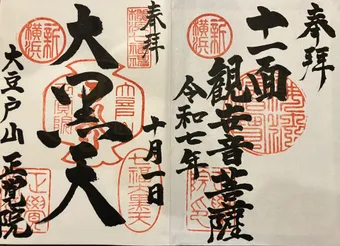 奉拝
十一面
観世音菩薩
令和七年
新
横浜
奉拝
十月一日
大黒天
大豆戸山 正覚院
新
横浜
正覺